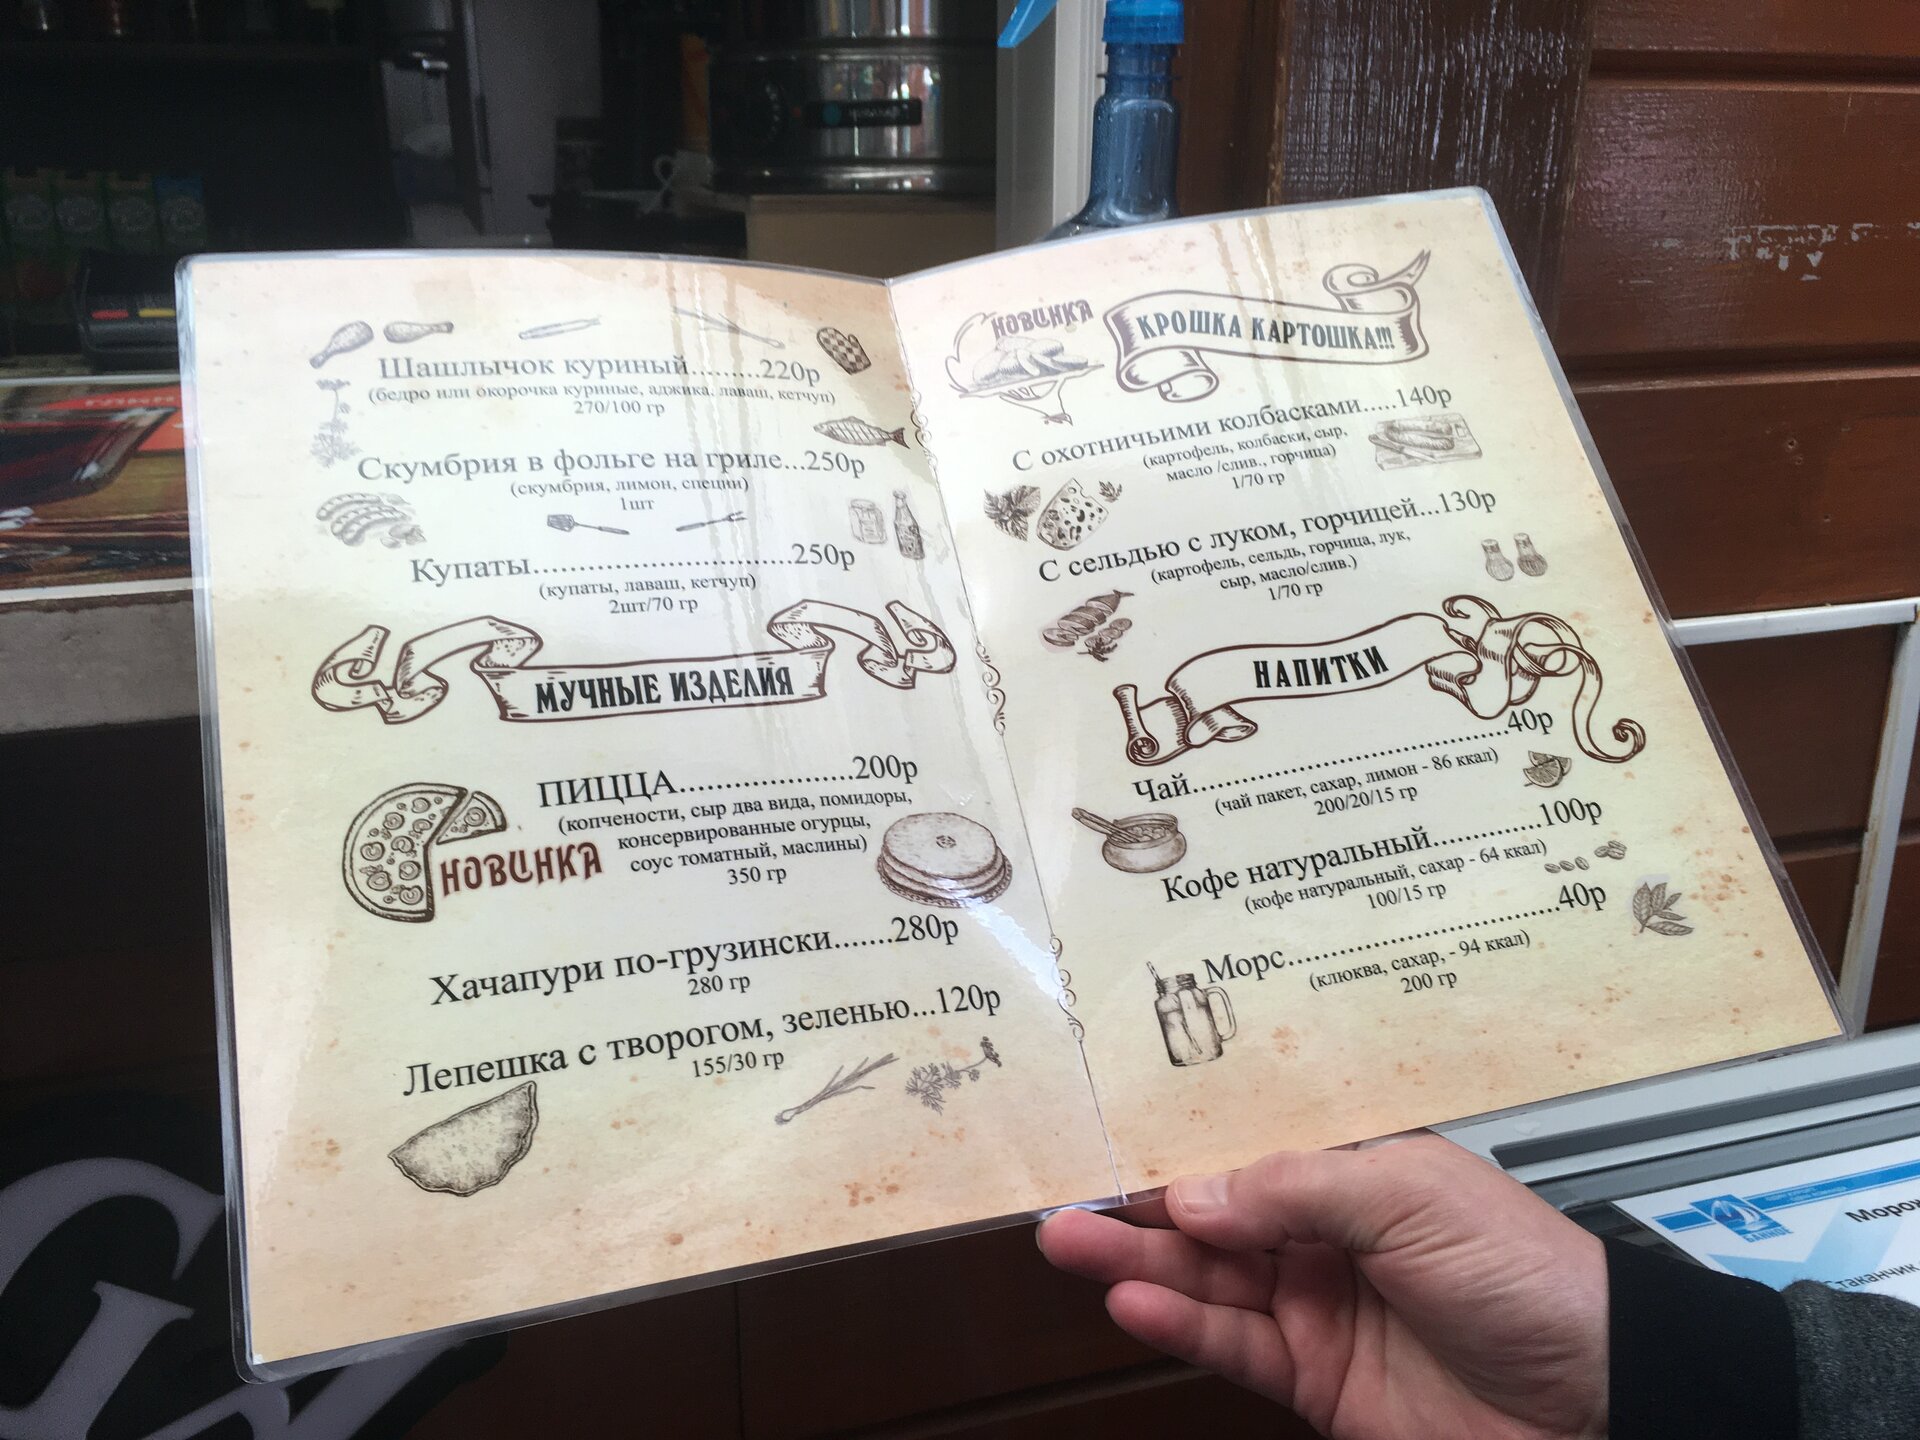 Шашлычок куриный.........220р
(бедро или окорочка куриные, аджика, лаваш, кетчуп)
270/100 гр
Скумбрия в фольге на гриле...250р
(скумбрия, лимон, специи)
1шт
Купаты............................250р
(купаты, лаваш, кетчуп)
2шт/70 гр
МУЧНЫЕ ИЗДЕЛИЯ
ПИЦЦА....................200р
(копчености, сыр два вида, помидоры,
консервированные огурцы,
соус томатный, маслины)
350 гр
НОВИНКА
Хачапури по-грузински.......280р
280 гр
Лепешка с творогом, зеленью...120р
155/30 гр
НОВИНКА
КРОШКА КАРТОШКА!!!
С охотничьими колбасками.....140р
(картофель, колбаски, сыр,
масло /слив., горчица)
1/70 гр
С сельдью с луком, горчицей...130р
(картофель, сельдь, горчица, лук,
сыр, масло/слив.)
1/70 гр
НАПИТКИ
Чай....................................40р
(чай пакет, сахар, лимон - 86 ккал)
200/20/15 гр
Кофе натуральный.............100р
(кофе натуральный, сахар - 64 ккал)
100/15 гр
Морс...............................40р
(клюква, сахар, - 94 ккал)
200 гр
БАННОЕ
Стаканчик